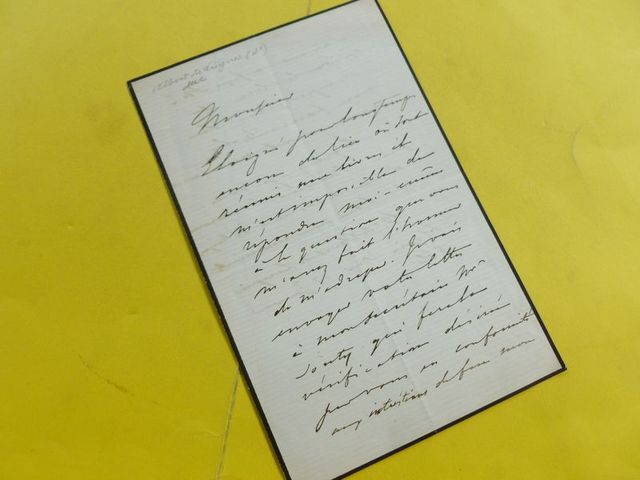 Albert de Luynes (
duc
Monsieur
Eloigné pour longtemps
encore du lieu où sont
réunis mes livres il
m'est impossible de
répondre moi-même
à la question que vous
m'avez fait l'honneur
de m'adresser. Je vais
envoyer votre lettre
à mon secrétaire Mr
qui fera la
vérification désirée
par vous en conformité
aux intentions de feu mon